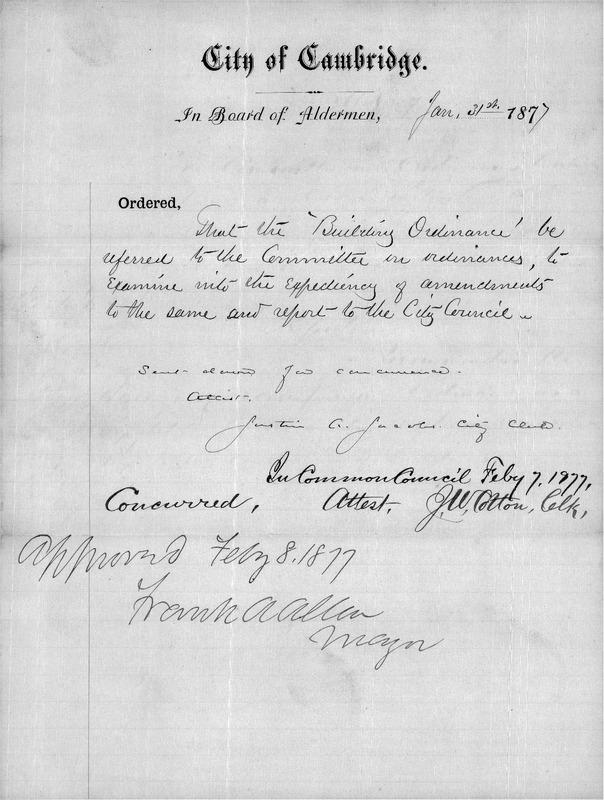 City of Cambridge.
In Board of Aldermen, Jan. 31st. 1877
Ordered,
That the 'Building Ordinance' be
referred to the Committee on ordinances, to
examine into the expediency of amendments
to the same and report to the City Council.
Sent down for concurrence.
Attest.
Justin A. Jacobs. City Clerk.
In Common Council Feby 7, 1877,
Concurred, Attest, J.W. Cotton, Clk,
Approved Feby 8. 1877
Frank A Allen
Mayor